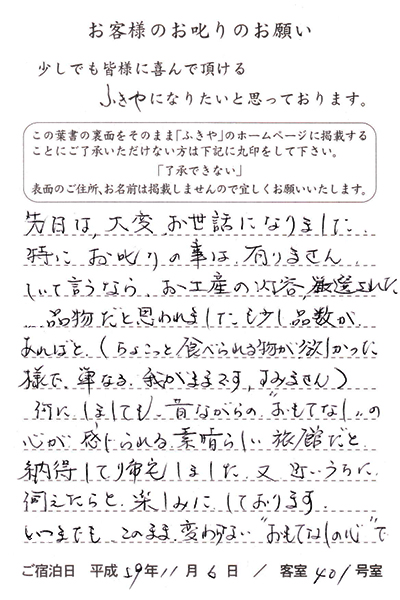 お客様のお叱りのお願い
少しでも皆様に喜んで頂ける
ふきやになりたいと思っております。
この葉書の裏面をそのまま「ふきや」のホームページに掲載する
ことにご了承いただけない方は下記に丸印をして下さい。
「了承できない」
表面のご住所、お名前は掲載しませんので宜しくお願いいたします。
先日は、大変、お世話になりました
特に お叱りの事は、有りません
しいて言うなら、お土産の内容、厳選された
品物だと思われましたも少し品数が
あればと、(ちょこっと食べられる物が欲しかった
様で、単なる、我がままです、すみません)
何にしましても、昔ながらの"おもてなし"の
心が、感じられる、素晴らしい 旅館だと
納得して帰宅しました、又 近いうちに
伺えたらと、楽しみに しております、
いつまでも、このまま、変わらない"おもてなしの心"で
ご宿泊日 平成 19年 11月 6日 / 客室 401号室